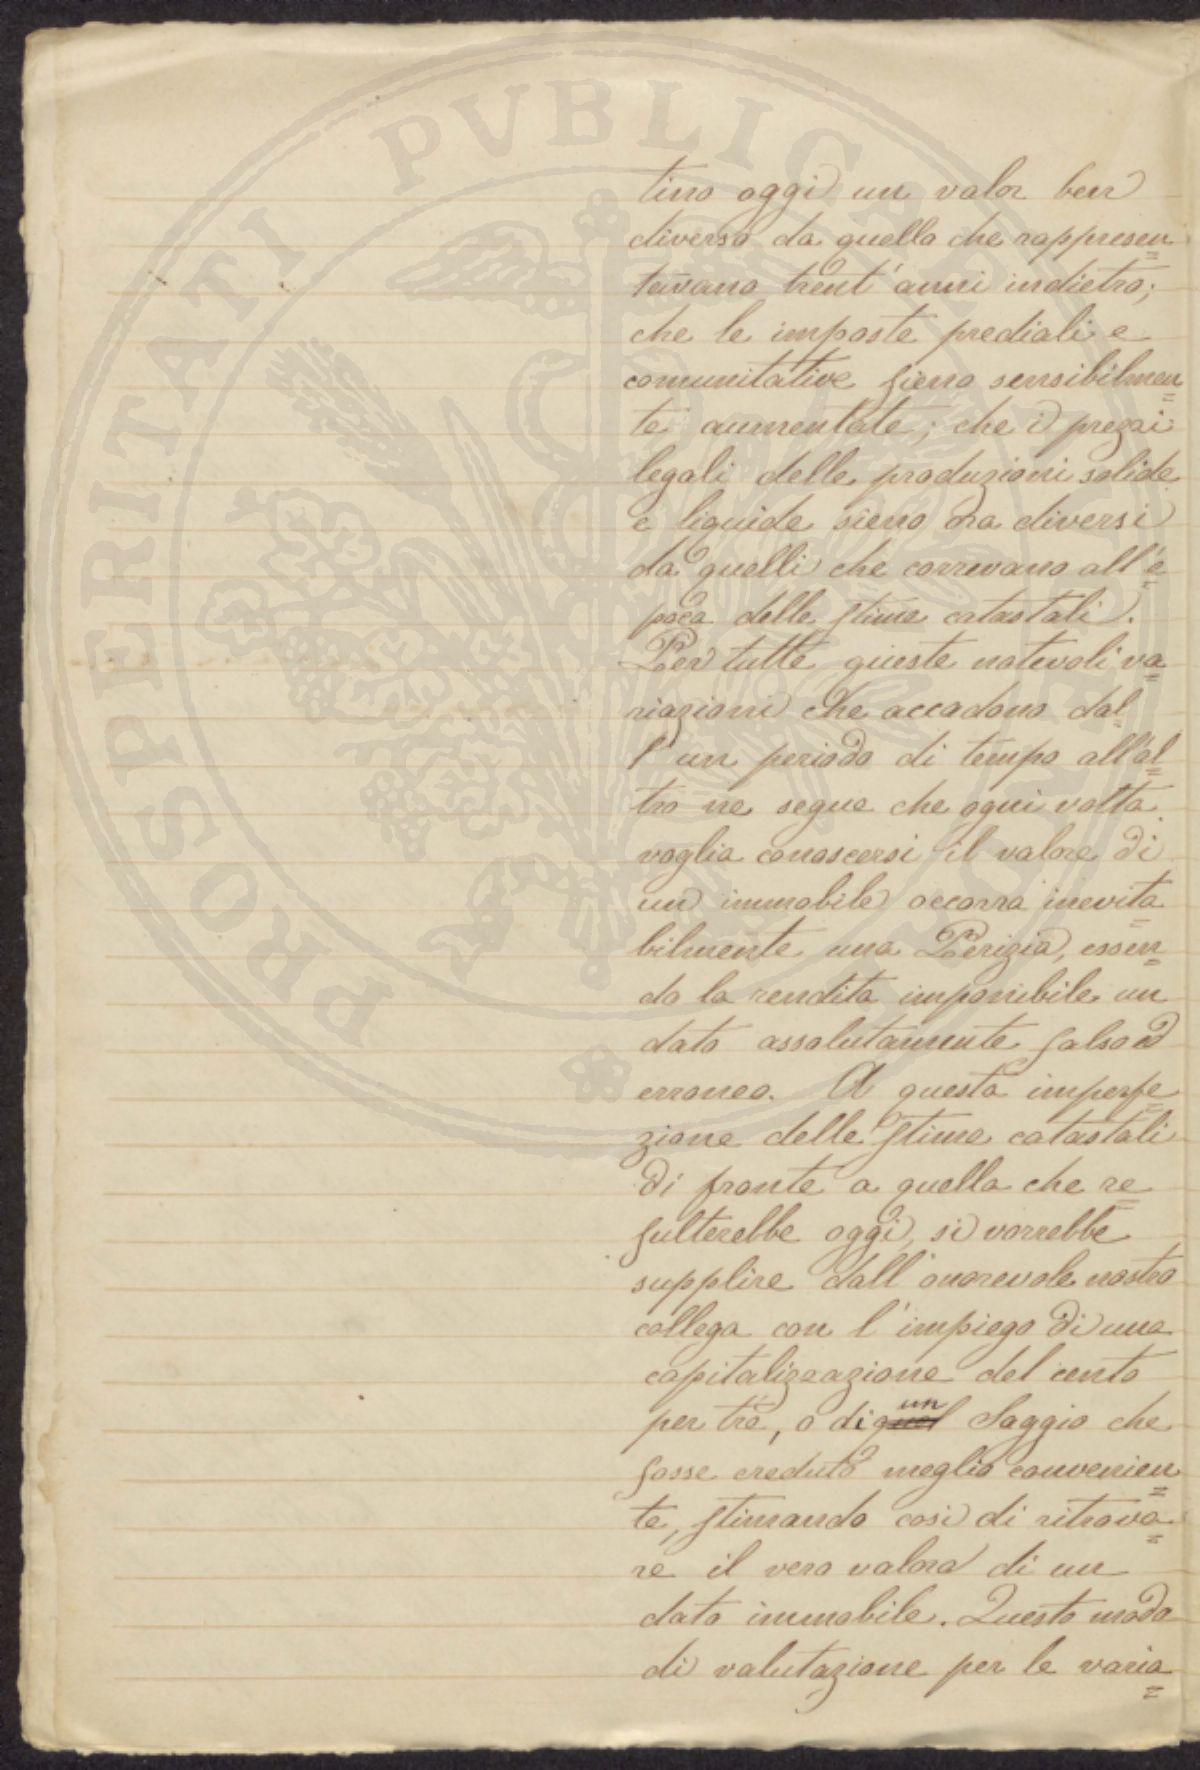 PROSPERITATI PVBLICAE
tino oggi un valor ben
diverso da quello che rappresen=
tavano trent'anni indietro;
che le imposte prediali e
comunitative sieno sensibilmen=
te aumentate; che i prezzi
legali delle produzioni solide
e liquide sieno ora diversi
da quelli che correvano all'e=
poca delle stime catastali.
Per tutte queste notevoli va=
riazioni che accadono dal=
l'un periodo di tempo all'al=
tro ne segue che ogni volta
voglia conoscersi il valore di
un immobile occorra inevita=
bilmente una Perizia, essen=
do la rendita imponibile un
dato assolutamente falso ed
erroneo. A questa imperfe=
zione delle stime catastali
di fronte a quella che re=
sulterebbe oggi, si vorrebbe
supplire dall'onorevole nostro
collega con l'impiego di una
capitalizzazione del cento
per tre, o di quel un Saggio che
fosse creduto meglio convenien=
te, stimando così di ritrova=
re il vero valore di un
dato immobile. Questo modo
di valutazione per le varia=